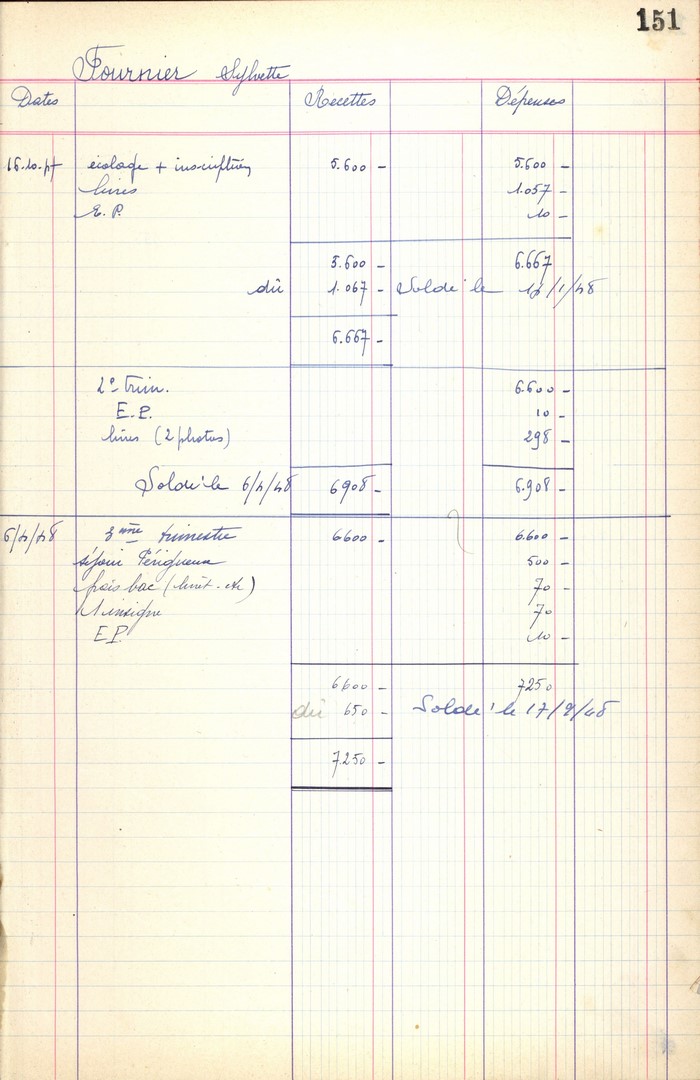 151
Fournier Sylvette
Dates Recettes Dépenses
16.10.47 écolage + inscription 5.600 - 5.600 -
livres 1.057 -
E.P. 10 -
5.600 - 6.667
dû 1.067 - Soldé le 1/48
6.667 -
2e trim. 6.600 -
E.P. 10 -
livres (2 photos) 298 -
Soldé le 6/4/48 6908 - 6.908 -
6/4/48 3ème trimestre 6600 - 6.600 -
séjour Périgueux 500 -
frais bac (livret. etc) 70 -
1 insigne 70 -
E.P. 10 -
6600 - 7250
dû 650 - Soldé le 17/9/48
7.250 -